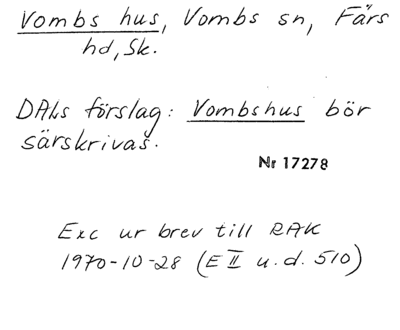 Vombs hus, Vombs sn, Färs
hd, Sk.
DALs förslag: Vombshus bör
särskrivas.
Nr 17278
Exc ur brev till RAK
1970-10-28 (E II u.d. 510)